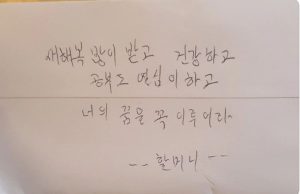 새해복 많이 받고 건강하고
공부도 열심이 하고
너의 꿈을 꼭 이루어라
-- 할머니 --